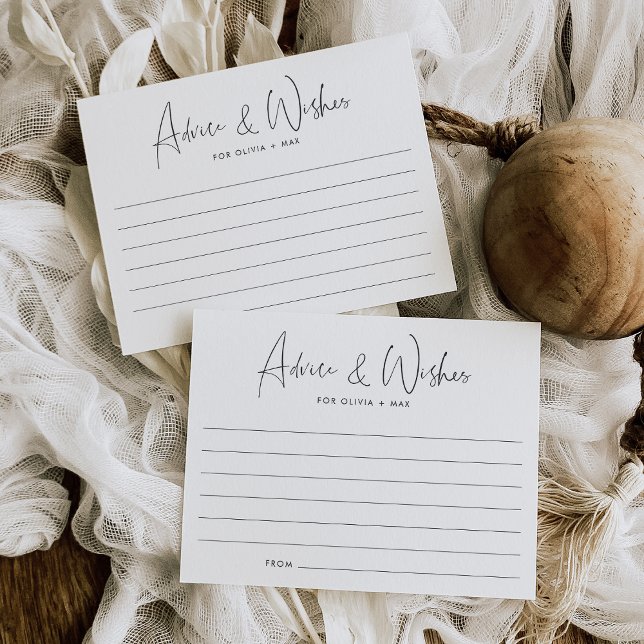 Advice & Wishes
FOR OLIVIA + MAX
Advice & Wishes
FOR OLIVIA + MAX
FROM